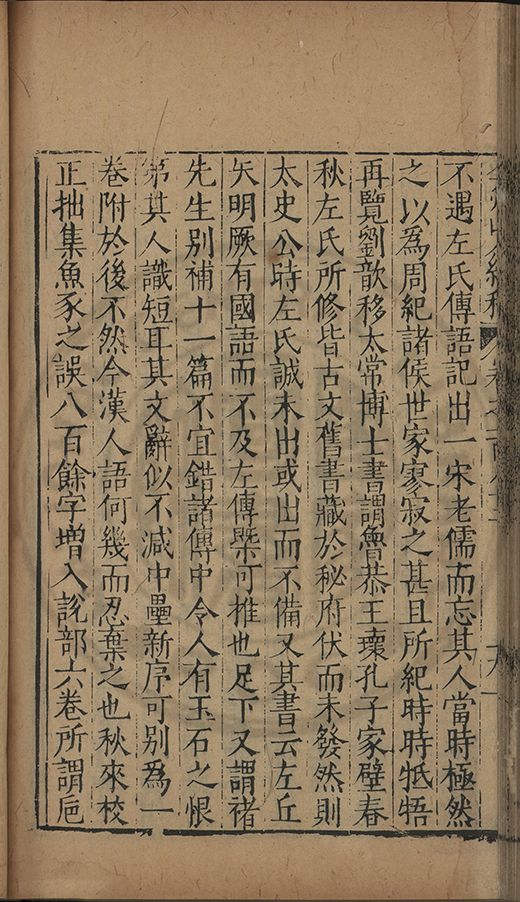 不遇左氏傳語記出一宋老儒而忘其人當時極然
之以為周紀諸侯世家寥寂之甚且所紀時時牴牾
再覽劉歆移太常博士書謂魯恭王壞孔子家壁春
秋左氏所修皆古文舊書藏於秘府伏而未發然則
太史公時左氏誠未出或出而不備又其書云左丘
失明厥有國語而不及左傳槩可推也足下又謂褚
先生別補十一篇不宜錯諸傳中令人有玉石之恨
第其人識短耳其文辭似不減中壘新序可別為一
卷附於後不然今漢人語何幾而忍棄之也秋來校
正拙集魚豕之誤八百餘字增入說部六卷所謂巵